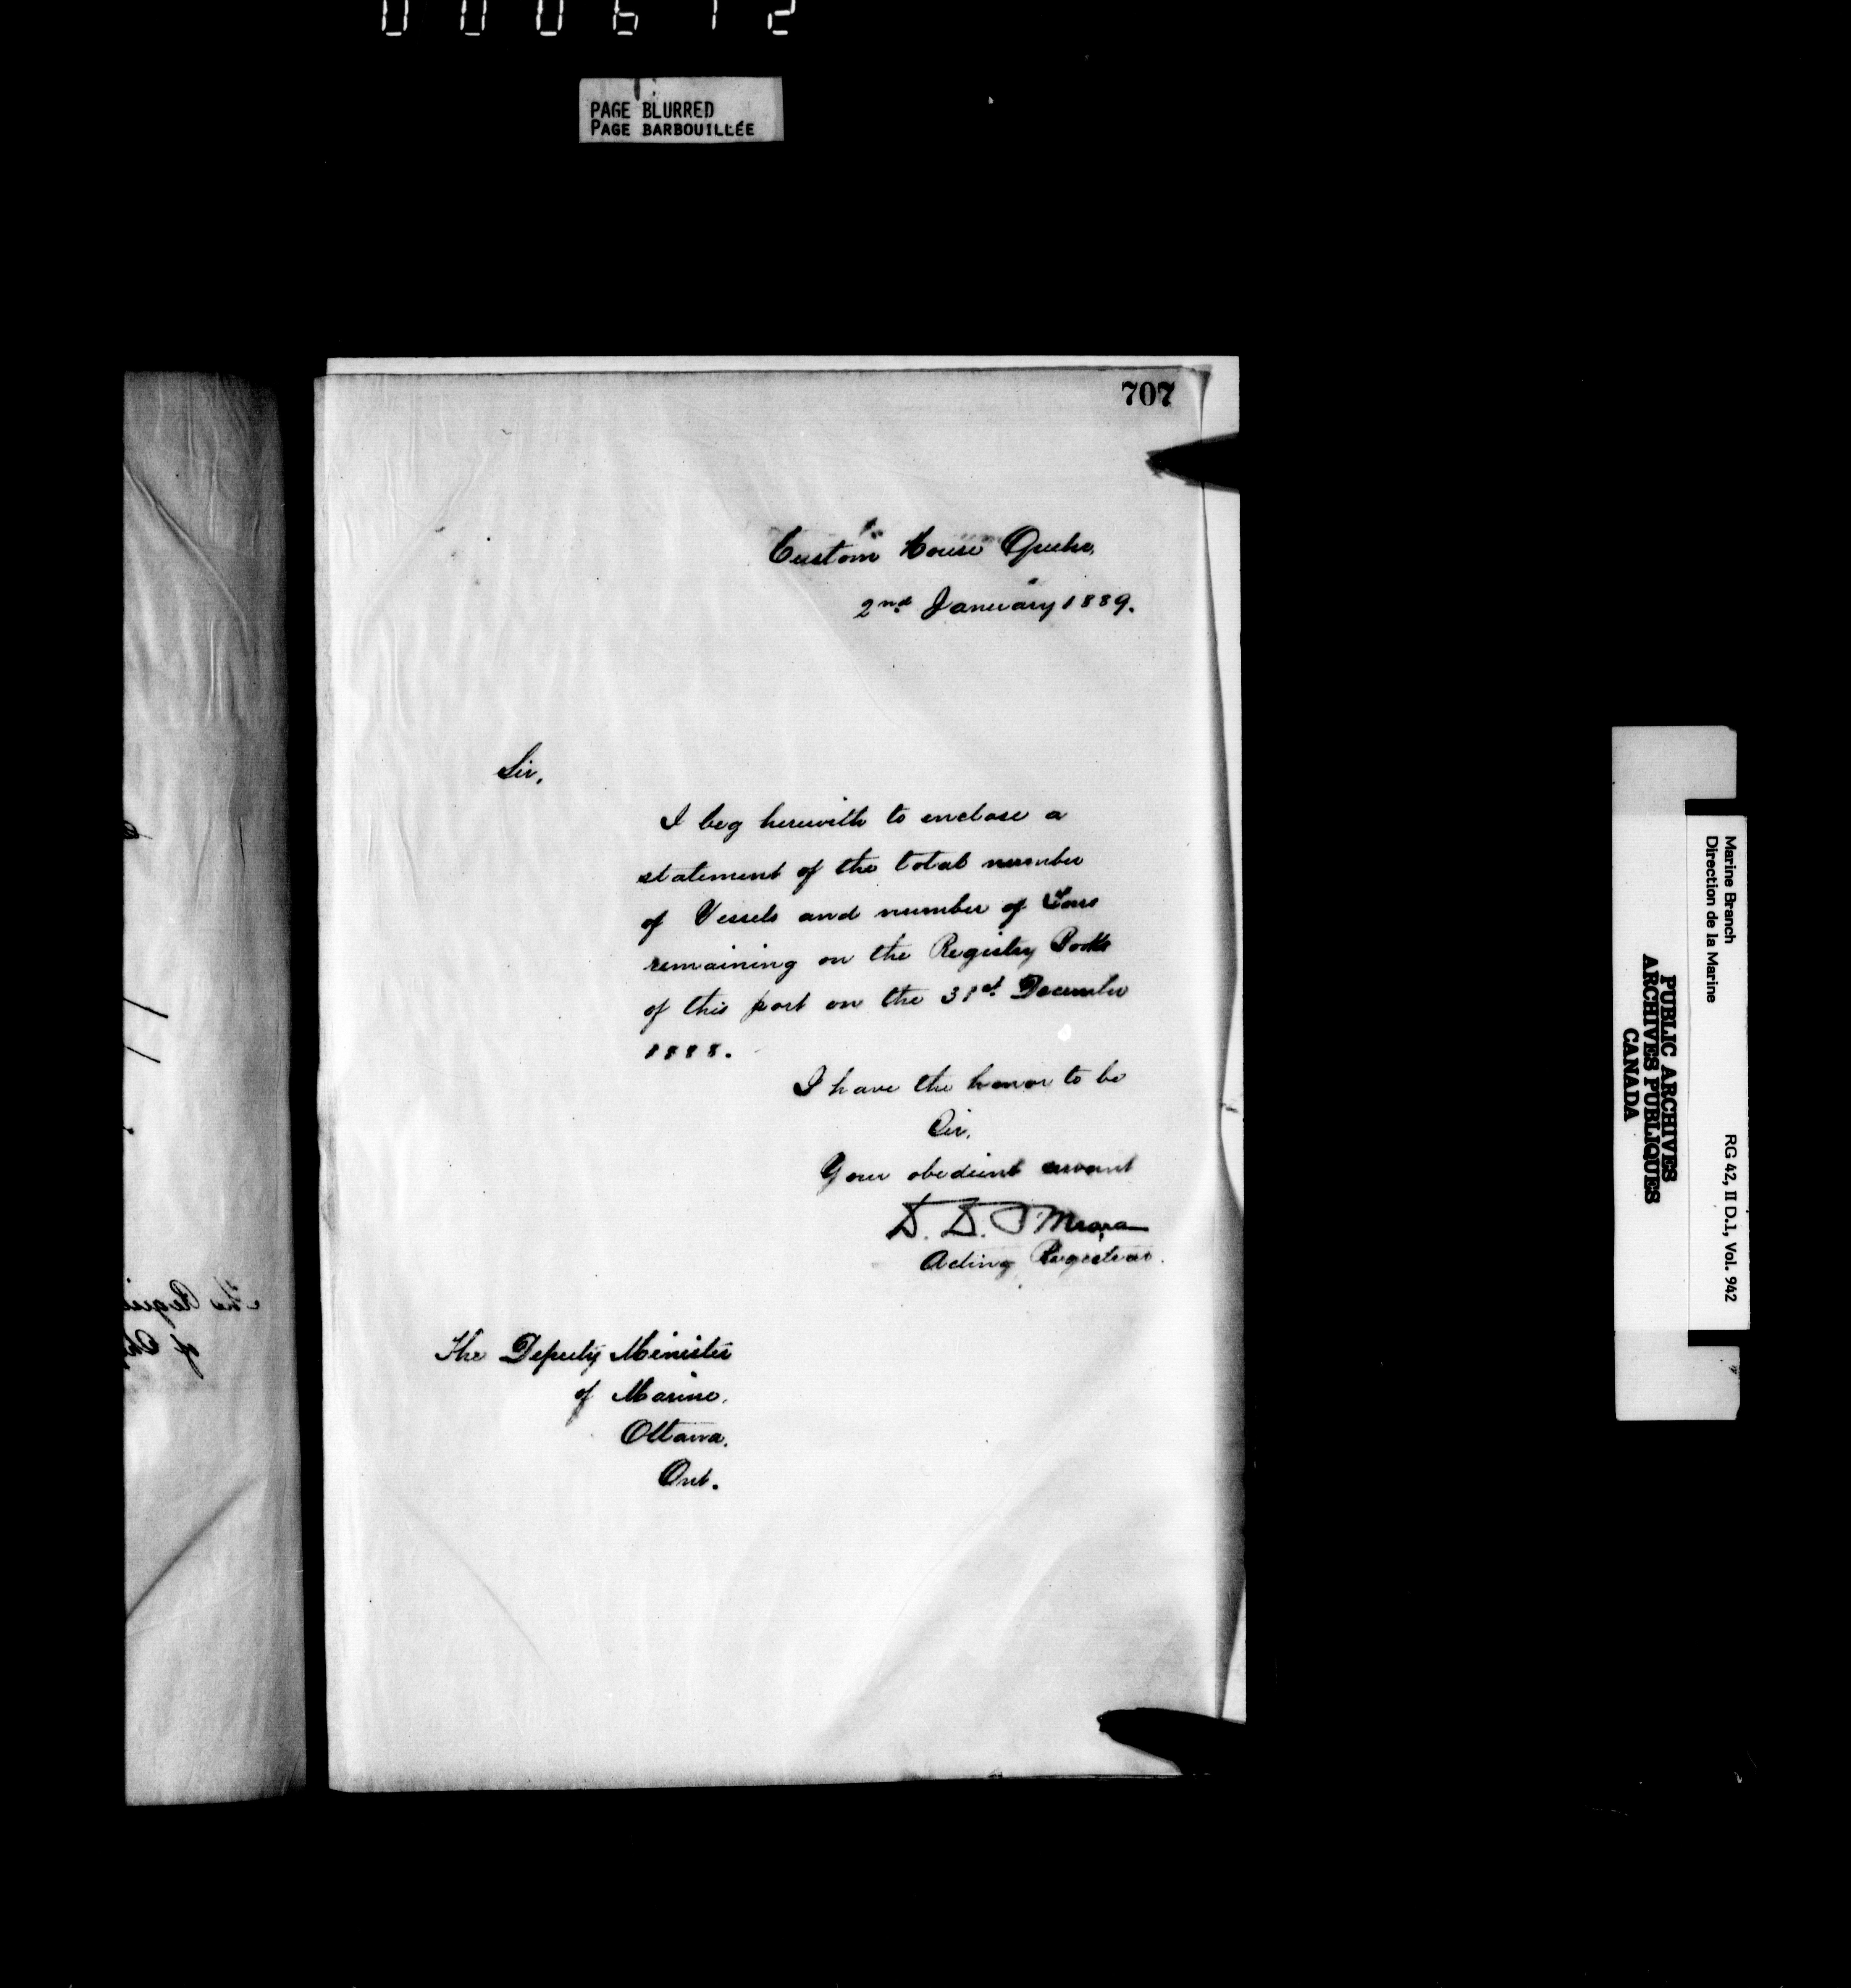 000672
PAGE BLURRED
PAGE BARBOUILLÉE
707
Custom House Quebec,
2nd January 1889.
Sir,
I beg herewith to enclose a
statement of the total number
of Vessels and number of Tons
remaining on the Registry Books
of this port on the 31st December
1888.
I have the honor to be
Sir,
Your obedient servant
D. D.
Acting Registrar.
The Deputy Minister
of Marine,
Ottawa,
Ont.
Marine Branch
Direction de la Marine
RG 42, II D.1, Vol. 942
PUBLIC ARCHIVES
ARCHIVES PUBLIQUES
CANADA